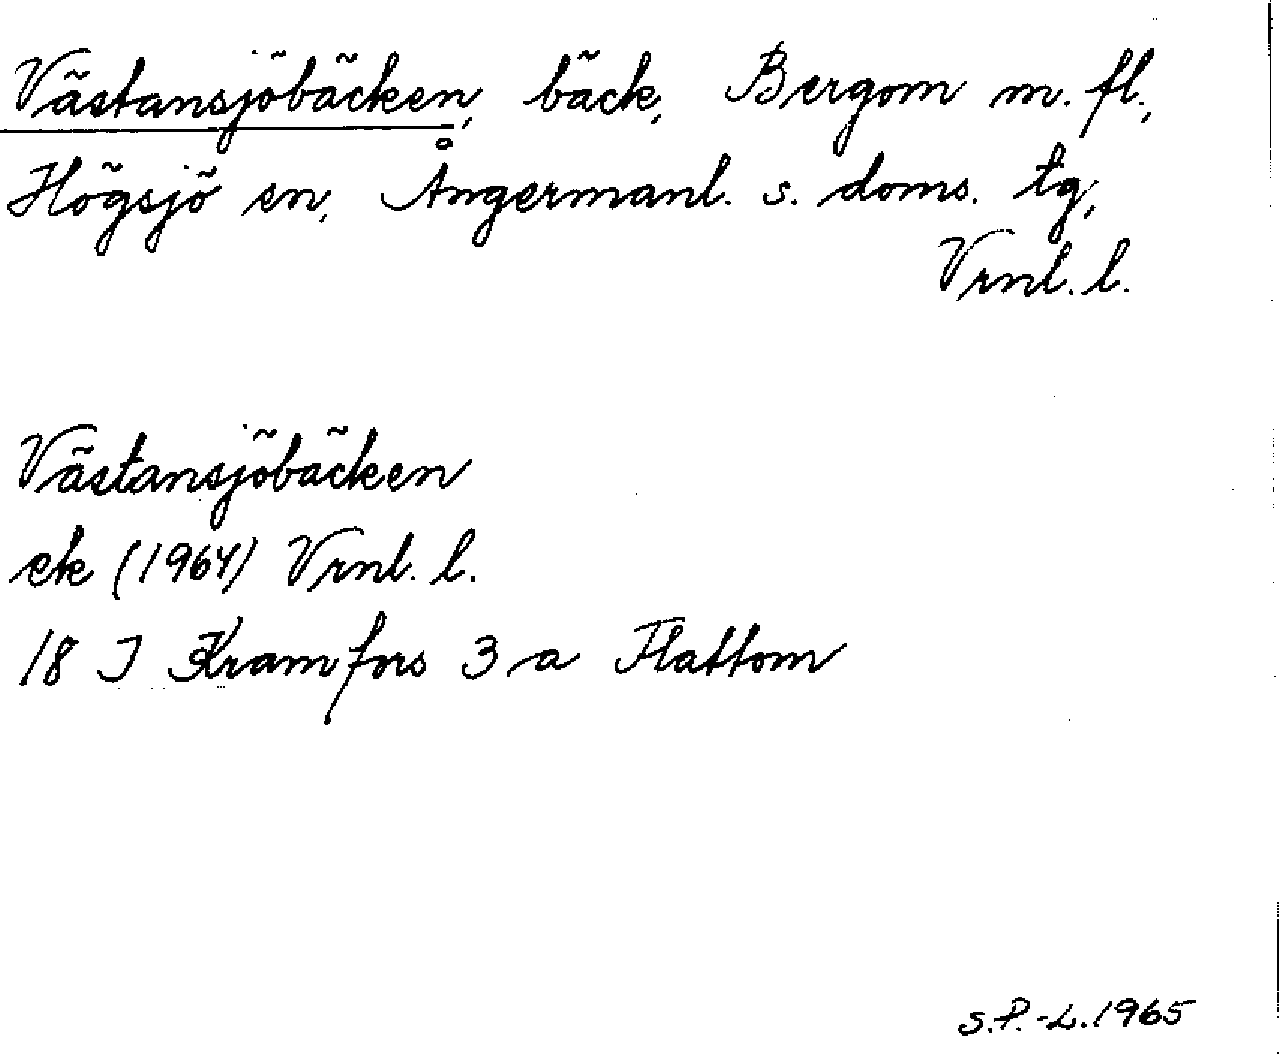 Västansjöbäcken, bäck, Bergom m. fl.,
Högsjö sn, Ångermanl. s. doms. tg,
Vrnl. l.
Västansjöbäcken
ek (1964) Vrnl. l.
18 J Kramfors 3 a Flattom
S.P.-L. 1965